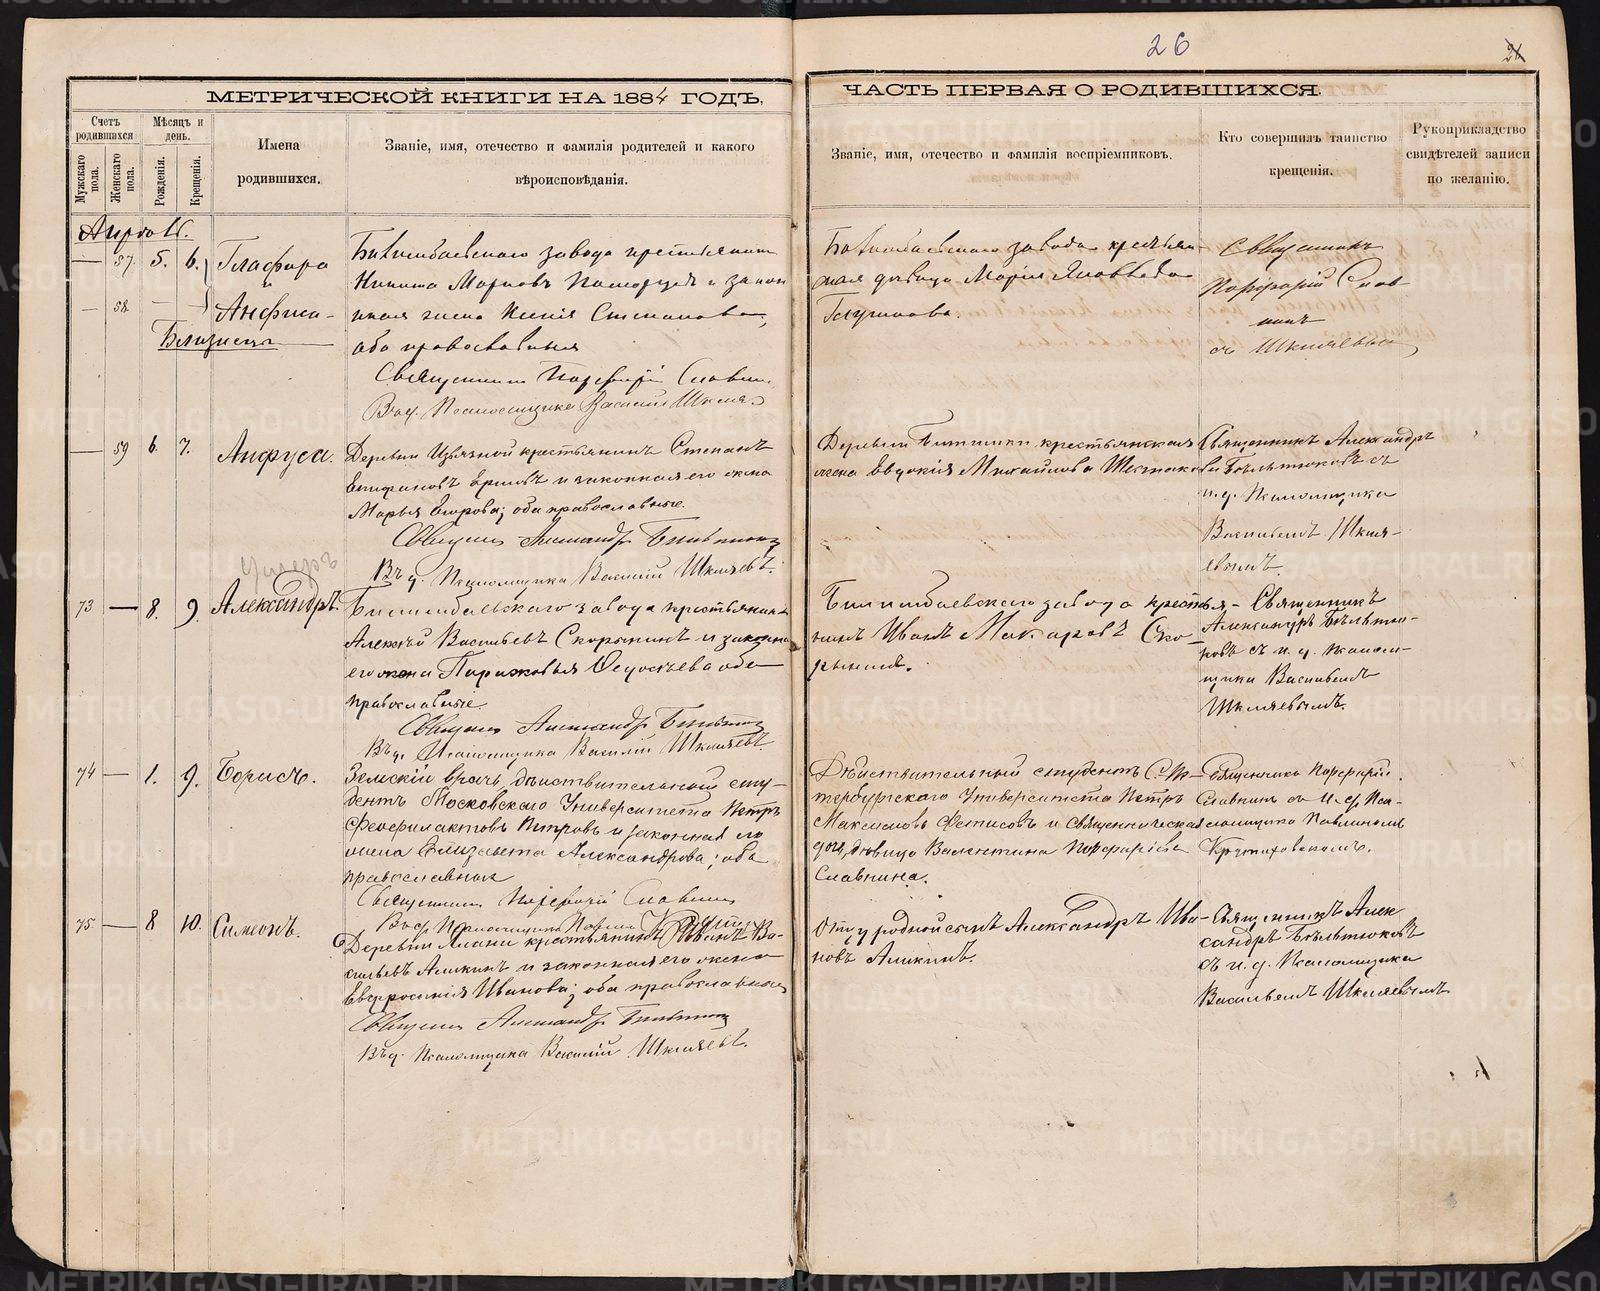 26
26
МЕТРИЧЕСКОЙ КНИГИ НА 1884 ГОДЪ,
ЧАСТЬ ПЕРВАЯ О РОДИВШИХСЯ.
Счетъ родившихся
Мужскаго пола.
Женскаго пола.
Мѣсяцъ и день.
Рожденія.
Крещенія.
Имена
родившихся.
Званіе, имя, отечество и фамилія родителей и какого
вѣроисповѣданія.
Званіе, имя, отечество и фамилія воспріемниковъ.
Кто совершилъ таинство
крещенія.
Рукоприкладство
свидѣтелей записи
по желанію.
57. 5. 6. Глафира
и
58. Анфиса
Близнецы
Билимбаевскаго завода крестьянинъ
Никита Марковъ и закон
ная жена Ксенія Степанова,
оба православныя
Священникъ Порфирій Славнинъ
Псаломщика Василій Шкляевъ
Билимбаевскаго завода крестьян
ская дѣвица Марія Яковлева
Священникъ
Порфирій Слав-
нинъ
съ Шкляевымъ
59 6. 7. Анфуса.
Деревни крестьянинъ Степанъ
Епифановъ Ершовъ и законная его жена
Марья Егорова; оба православные.
Священникъ Александръ Бѣльтюковъ
Въ д. Псаломщика Василій Шкляевъ.
Деревни крестьянская
жена Евдокія Михайлова
Священникъ Александръ
Бѣльтюковъ съ
и. д. Псаломщика
Васильемъ Шкля-
евымъ.
Умеръ
73 8. 9. Александръ.
Билимбаевскаго завода крестьянинъ
Алексѣй Васильевъ Скорынинъ и законная
его жена Парасковья Федосѣева оба
православные.
Священникъ Александръ Бѣльтюковъ
Въ д. Псаломщика Василій Шкляевъ.
Билимбаевскаго завода крестья-
нинъ Иванъ Макаровъ Ско-
рынинъ.
Священникъ
Александръ Бѣльтю-
ковъ съ и. д. псалом-
щика Васильемъ
Шкляевымъ.
74 1. 9. Борисъ.
Земскій врачъ, дѣйствительный сту-
дентъ Московскаго Университета Петръ
Феофилактовъ Петровъ и законная его
жена Елизавета Александрова; оба
православныя
Священникъ Порфирій Славнинъ
Дѣйствительный студентъ С. Пе-
тербургскаго Университета Петръ
Максимовъ Фетисовъ и Священническая
дочь, дѣвица Валентина Порфиріева
Славнина.
Священникъ Порфирій
Славнинъ съ И. д. Пса-
ломщика Павлиномъ
75 8 10. Симеонъ.
Деревни крестьянинъ Иванъ Ва-
сильевъ Аликинъ и законная его жена
Евфросинія Иванова; оба православные
Священникъ Александръ Бѣльтюковъ
Въ д. Псаломщика Василій Шкляевъ.
Отцу родной сынъ Александръ Ива-
новъ Аликинъ.
Священникъ Алек
сандръ Бѣльтюковъ
съ и. д. Псаломщика
Васильемъ Шкляевымъ
METRIKI.GASO-URAL.RU